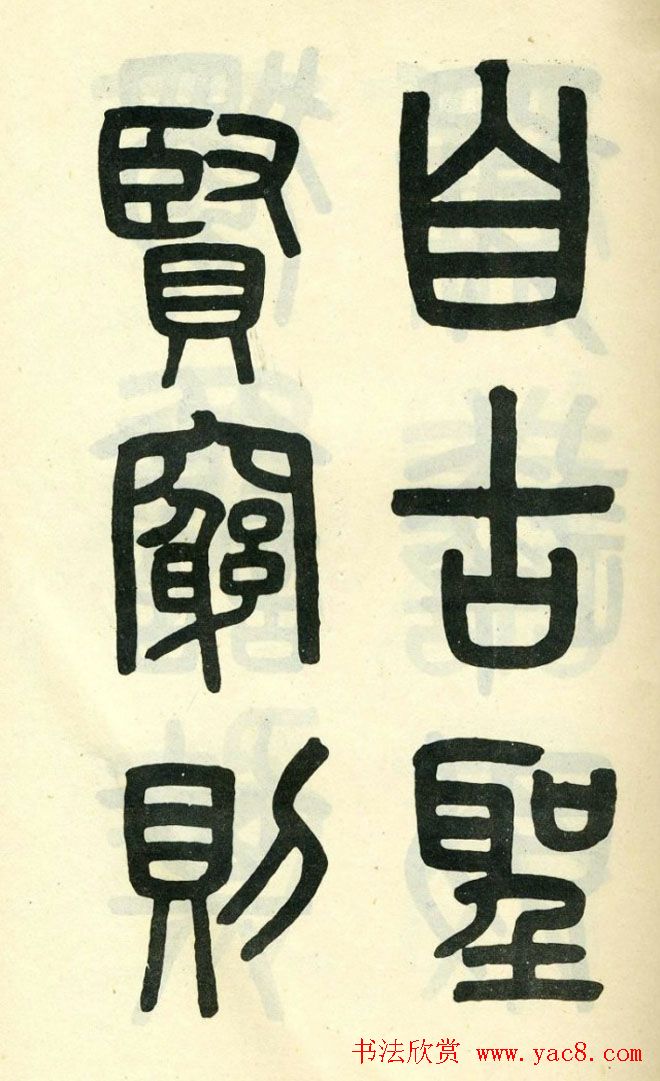 自古聖
賢窮則
书法欣赏 www.yac8.com